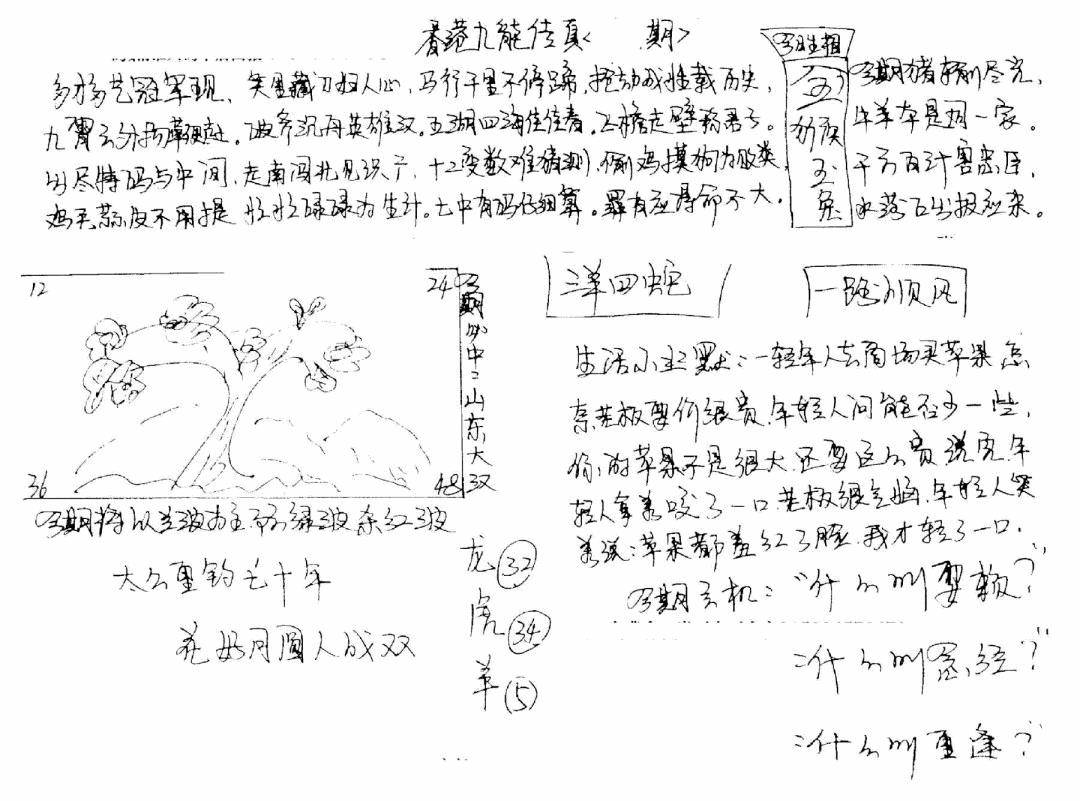 香港九能传真< 期>
多才多艺冠军现、笑里藏刀妇人心,马行千里不停蹄,挖动 载历史,
九霄云外扬鞭起。破斧沉舟英雄汉。五湖四海佳佳春。飞檐走壁 君子。
出尽特码与中间,走南闯北见识广,十二变数难猜测,偷鸡摸狗为败类,
鸡毛蒜皮不用提 忙忙碌碌为生计。七中有码仔细算。罪有应得命不大。
今期猪 尽完,
牛羊本是同一家。
千方百计害忠臣,
水落石出报应来。
12
24
36
48
今期必中:山东大汉
今期将以 波为主 绿波杂红波
太公 钓七十年
花好月圆人成双
龙 32
虎 34
羊 5
三羊四蛇
一路顺风
生活小幽默:一轻年人去商场买苹果怎
奈老板要价很贵,年轻人问能否少一些,
你的苹果不是很大,还要这么贵说完年
轻人拿着咬了一口老板很气恼,年轻人笑
着说:苹果都羞红了脸,我才轻了一口.
今期玄机:“什么叫耍赖?”
:什么叫 经?”
:什么叫重逢?”